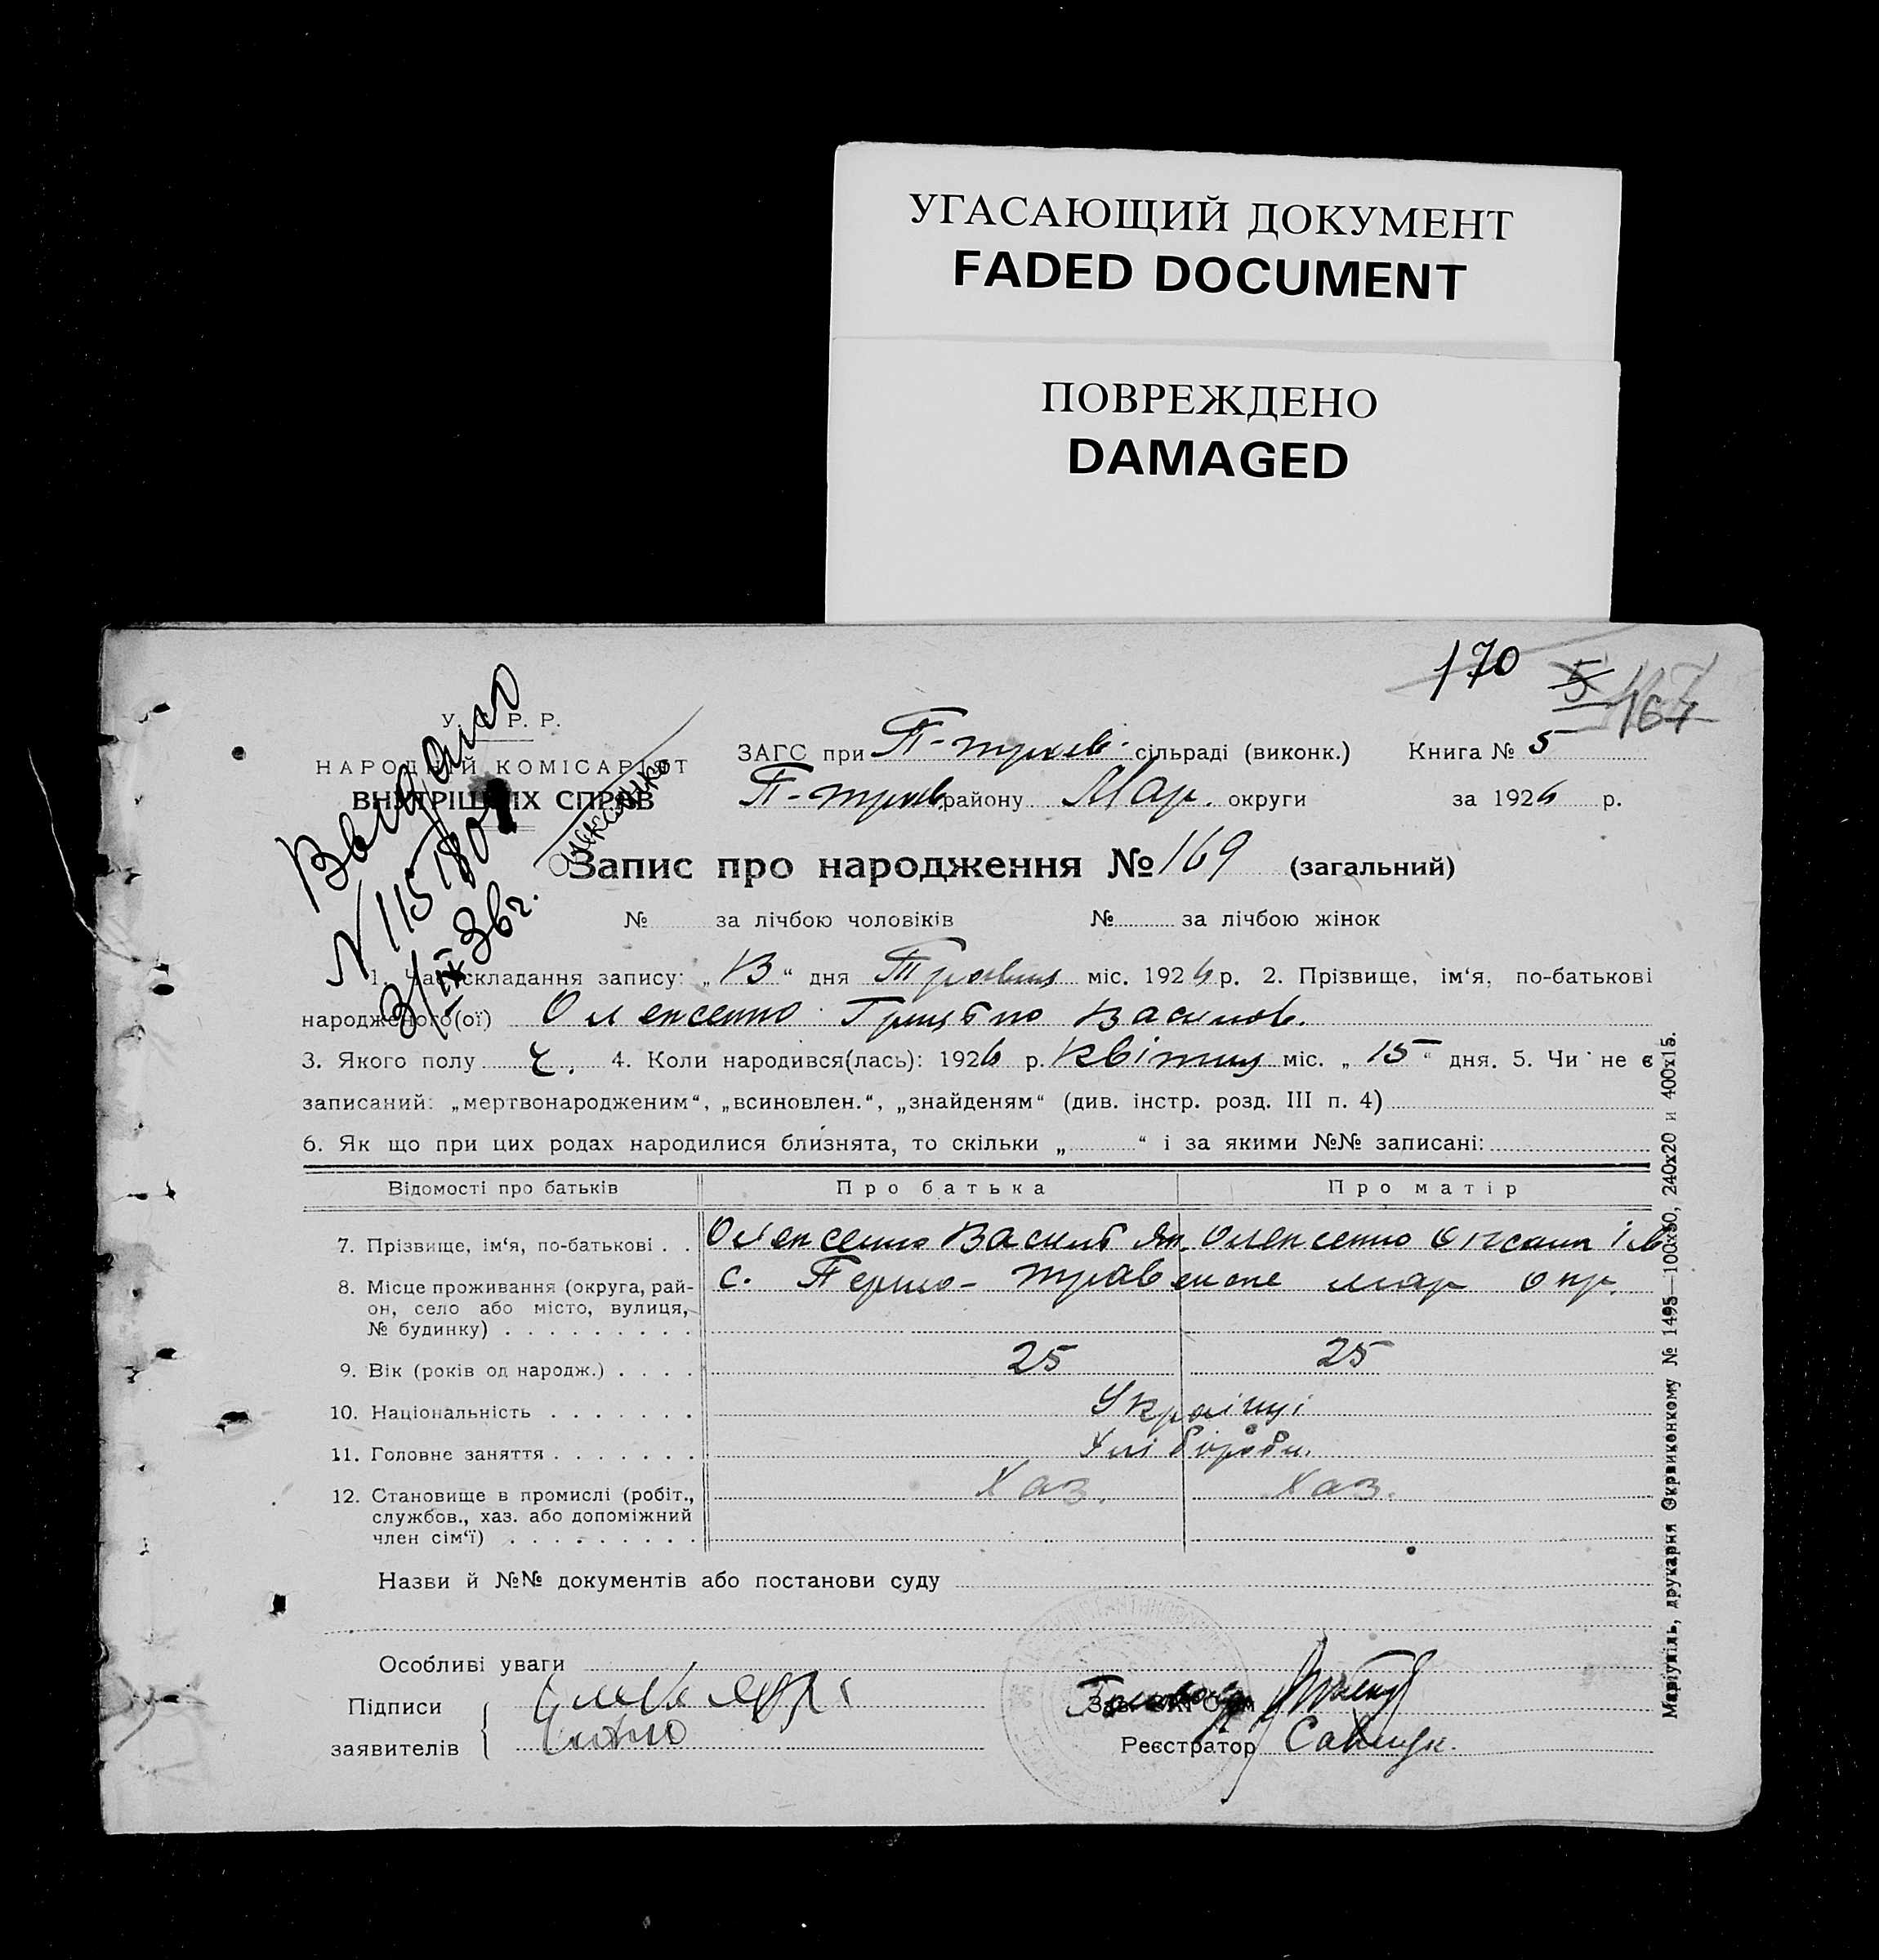 УГАСАЮЩИЙ ДОКУМЕНТ
FADED DOCUMENT
ПОВРЕЖДЕНО
DAMAGED
170 5 167
У. С. Р. Р.
НАРОДНІЙ КОМІСАРІЯТ
ВНУТРІШНІХ СПРАВ
Видано
N 115180
3/IX 36 г.
ЗАГС при П-трав- сільраді (виконк.) Книга № 5
П-трав. району Мар. округи за 1926 р.
Запис про народження № 169 (загальний)
№ за лічбою чоловіків № за лічбою жінок
1. Час складання запису: „13“ дня Травня міс. 1926 р. 2. Прізвище, ім‘я, по-батькові
народженого(ої) Олексенко Грицько Васильов.
3. Якого полу ч. 4. Коли народився(лась): 1926 р. Квітня міс. „15“ дня. 5. Чи не є
записаний: „мертвонародженим“, „всиновлен.“, „знайденям“ (див. інстр. розд. III п. 4)
6. Як що при цих родах народилися близнята, то скільки „ “ і за якими №№ записані:
Відомості про батьків Про батька Про матір
7. Прізвище, ім‘я, по-батькові . . Олексенко Василь Як. Олексенко
8. Місце проживання (округа, рай- с. Першо-травенське мар окр.
он, село або місто, вулиця,
№ будинку) . . . . . . . . .
9. Вік (років од народж.) . . . . 25 25
10. Національність . . . . . . . Українці
11. Головне заняття . . . . . . . Хліборобн.
12. Становище в промислі (робіт., Хаз. Хаз.
службов., хаз. або допоміжний
член сім‘ї) . . . . . . . . .
Назви й №№ документів або постанови суду
Особливі уваги
Підписи
заявителів
Реєстратор Савицк.
Маріупіль, друкарня Окрвиконкому № 1495—100х50, 240х20 и 400х15.